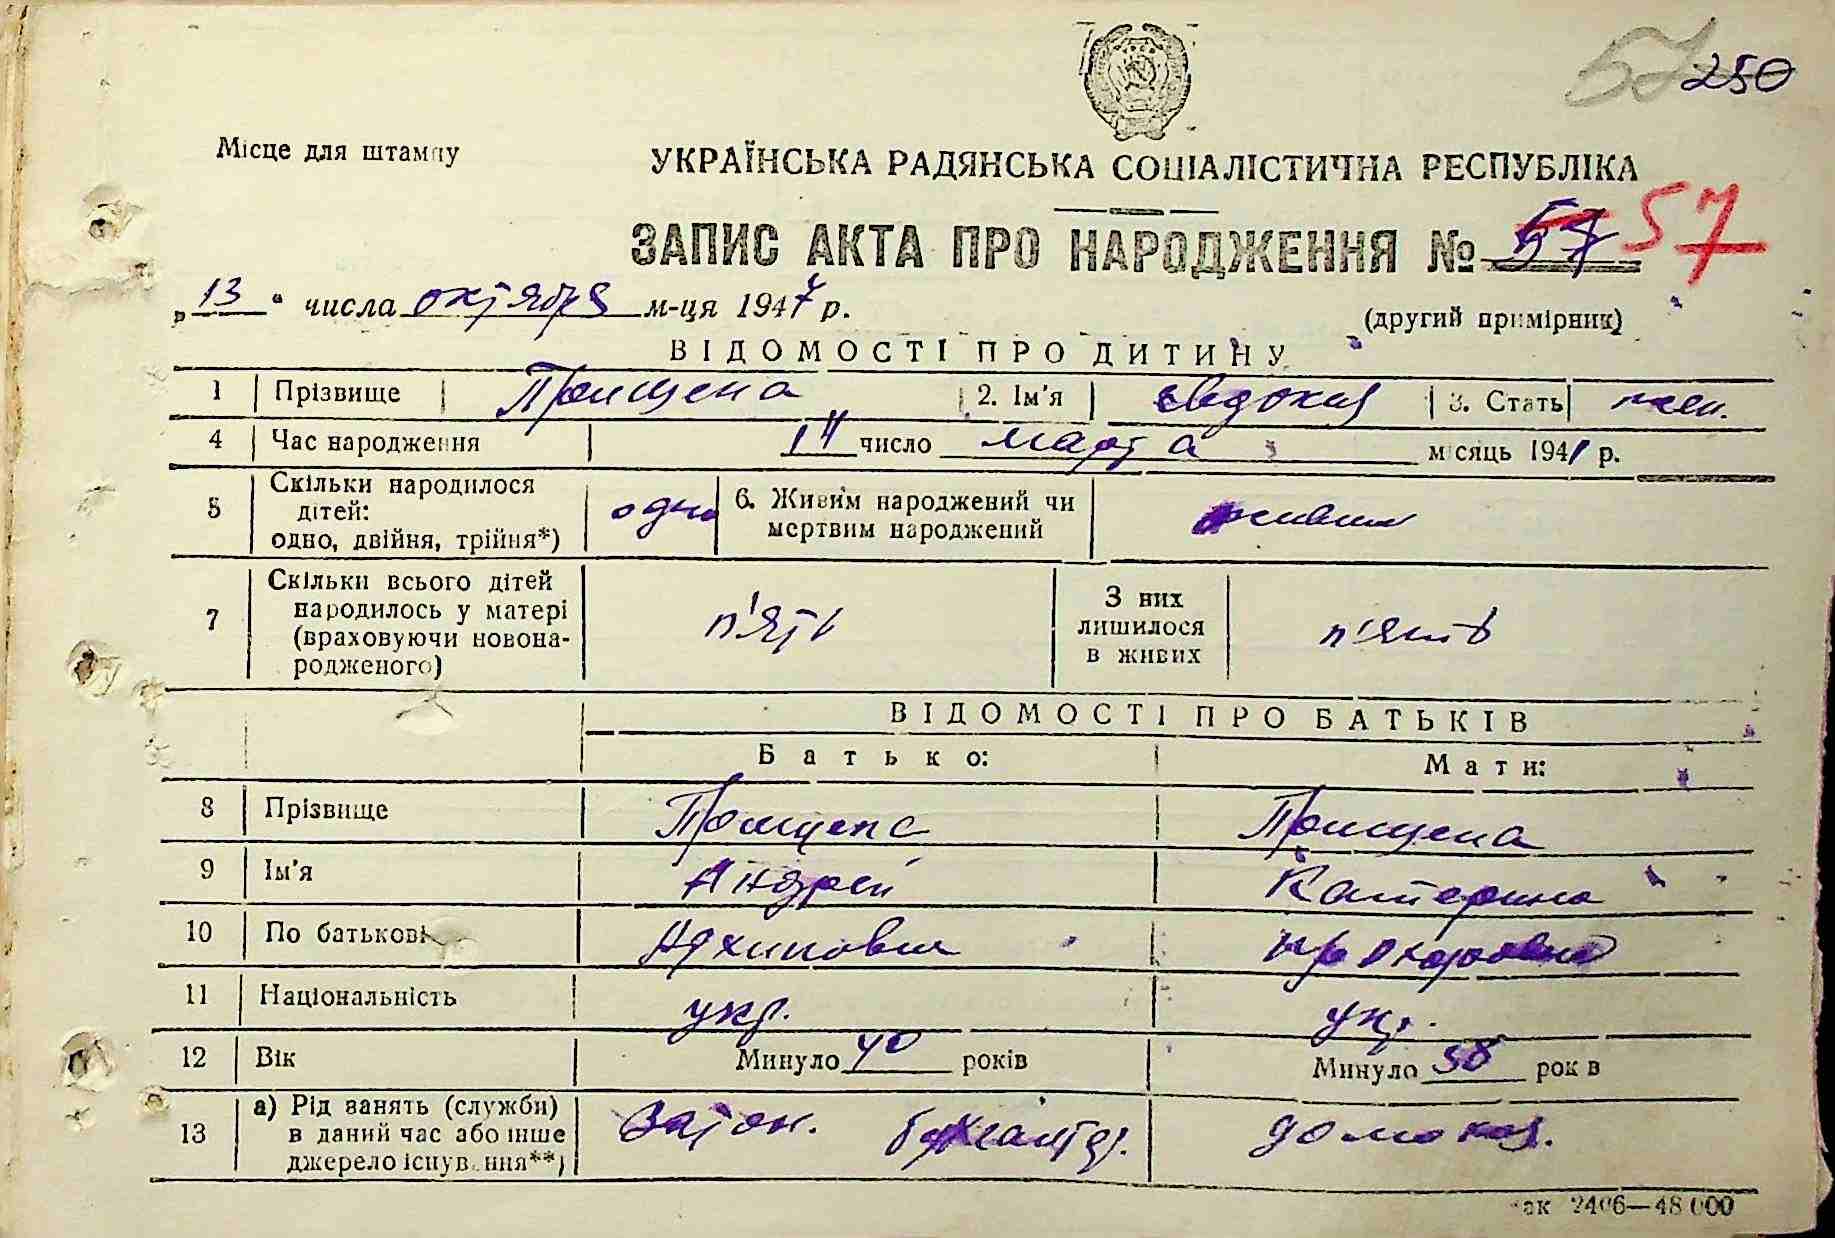 57 250
Місце для штампу
УКРАЇНСЬКА РАДЯНСЬКА СОЦІАЛІСТИЧНА РЕСПУБЛІКА
ЗАПИС АКТА ПРО НАРОДЖЕННЯ № 57 57
„13“ числа октября м-ця 1947 р.
(другий примірник)
ВІДОМОСТІ ПРО ДИТИНУ
1 Прізвище 2. Ім'я Евдокия 3. Стать жен.
4 Час народження 14 число марта місяць 1941 р.
5 Скільки народилося дітей: одно, двійня, трійня*) одно 6. Живим народжений чи мертвим народжений живим
7 Скільки всього дітей народилось у матері (враховуючи новонародженого) п'ять З них лишилося в живих п'ять
ВІДОМОСТІ ПРО БАТЬКІВ
Батько: Мати:
8 Прізвище
9 Ім'я Андрей Катерина
10 По батькові Архипович Прохоровна
11 Національність укр. укр.
12 Вік Минуло 40 років Минуло 38 років
13 а) Рід занять (служби) в даний час або інше джерело існування**) бухгалтер. домохоз.
зак 2406—48 000